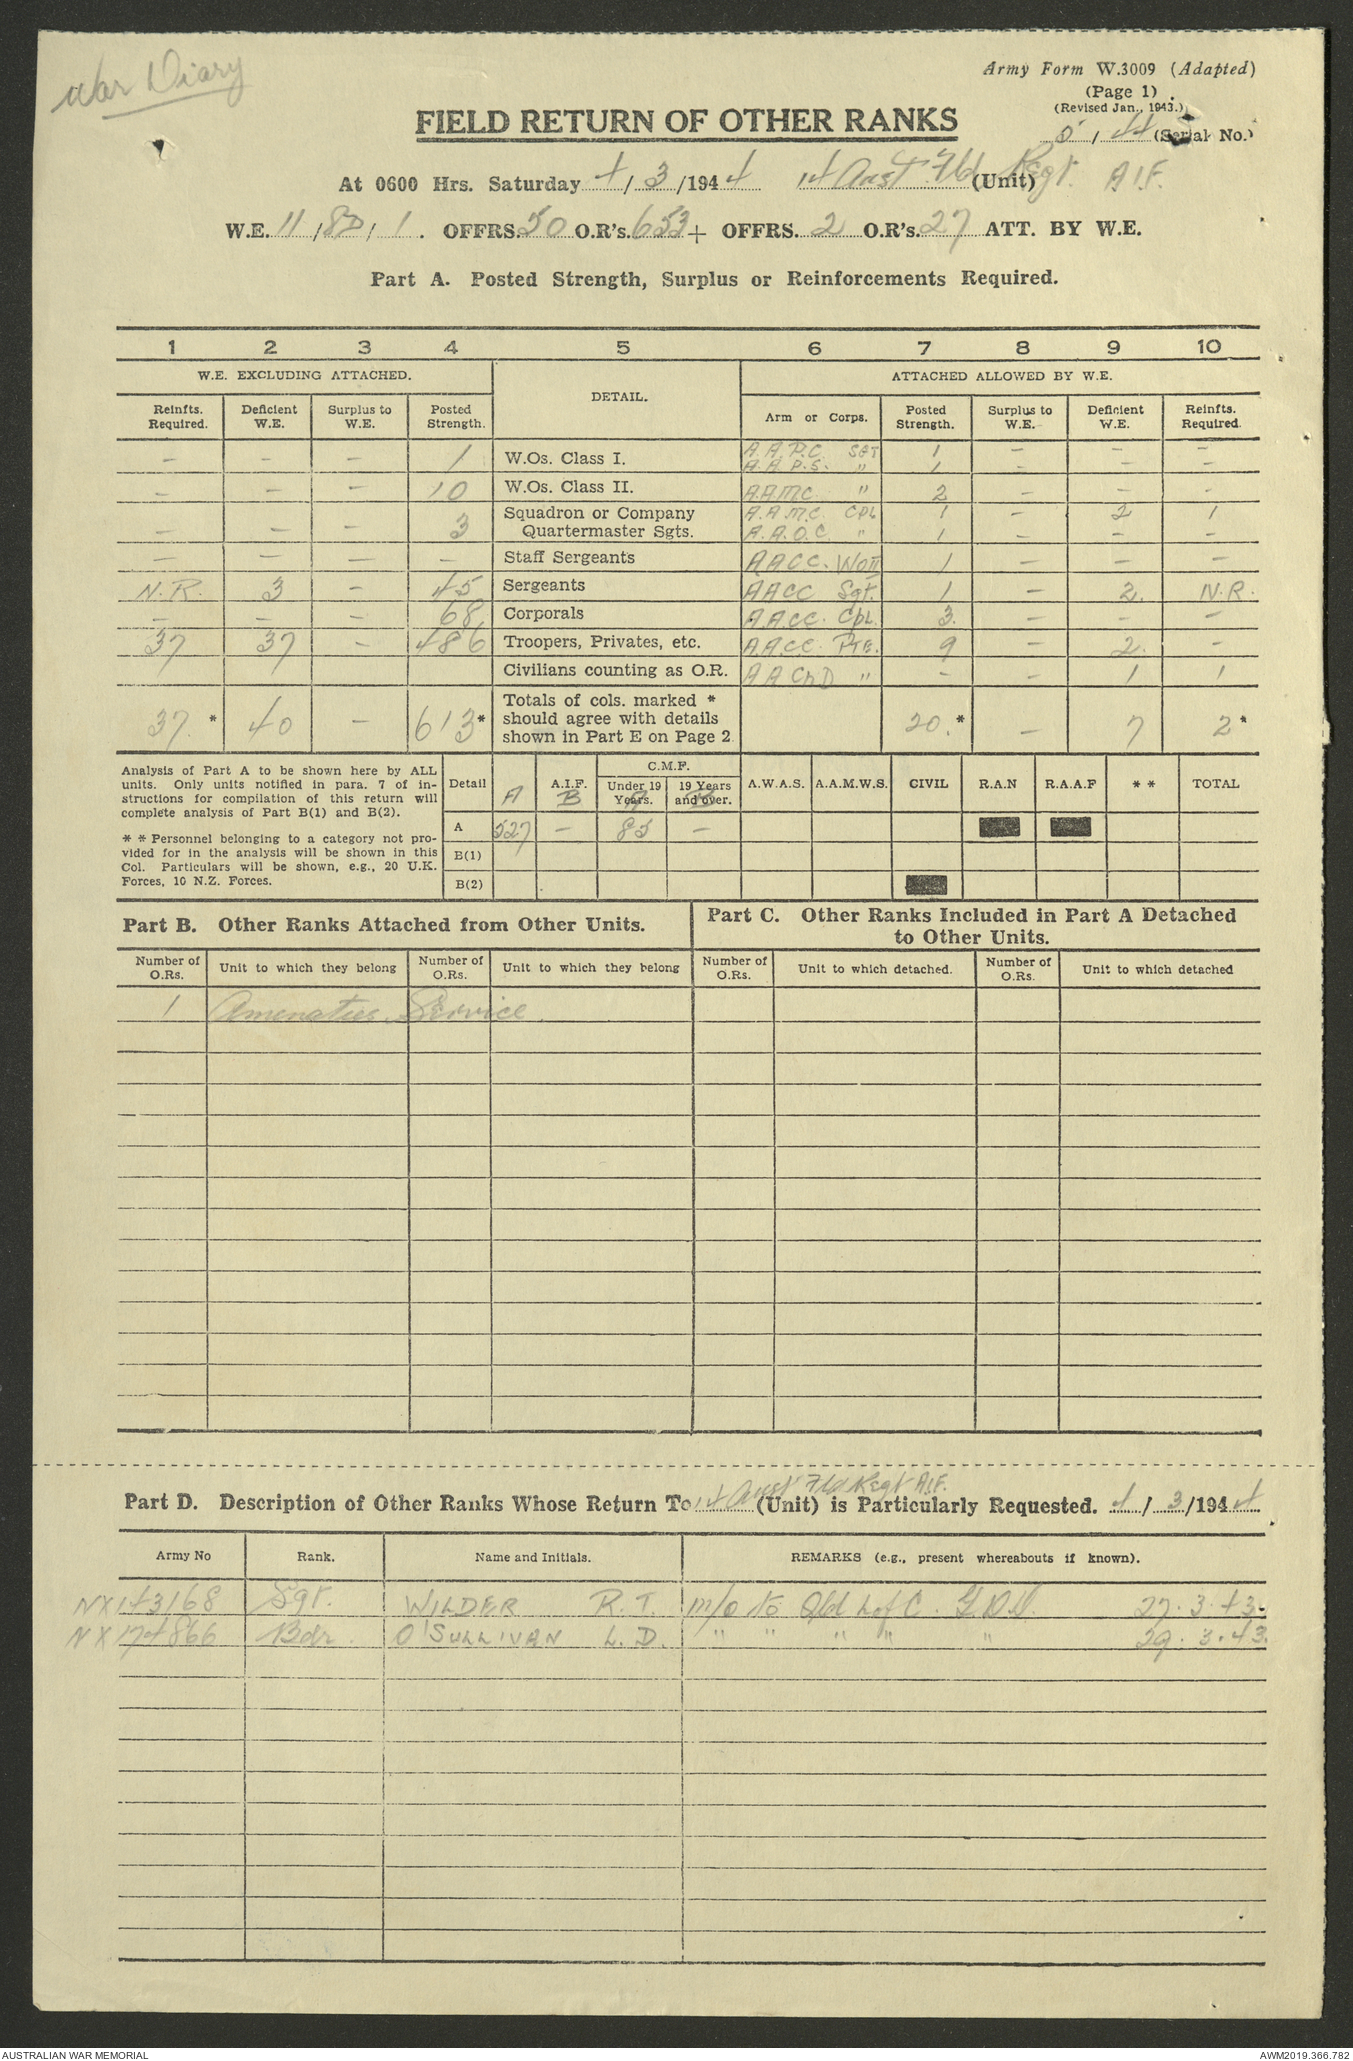 War Diary
Army Form W.3009 (Adapted)
(Page 1)
(Revised Jan., 1943.)
5 / 44 (Serial No.)
FIELD RETURN OF OTHER RANKS
At 0600 Hrs. Saturday 4/3/1944 14 Aust Fld Regt. AIF. (Unit)
W.E. 11/8D/1. OFFRS. 50 O.R's. 653 + OFFRS. 2 O.R's. 27 ATT. BY W.E.
Part A. Posted Strength, Surplus or Reinforcements Required.
1 2 3 4 5 6 7 8 9 10
W.E. EXCLUDING ATTACHED. DETAIL. ATTACHED ALLOWED BY W.E.
Reinfts. Required. Deficient W.E. Surplus to W.E. Posted Strength. Arm or Corps. Posted Strength. Surplus to W.E. Deficient W.E. Reinfts. Required.
- - - 1 W.Os. Class I. A.A.P.C. SGT 1 - - -
A.A.P.S. " 1 - - -
- - - 10 W.Os. Class II. AAMC " 2 - - -
- - - 3 Squadron or Company Quartermaster Sgts. A.A.M.C. CPL 1 - 2 1
A.A.O.C. " 1 - - -
- - - - Staff Sergeants AACC. WOII 1 - - -
N.R. 3 - 45 Sergeants AACC Sgt. 1 - 2. N.R.
- - - 68 Corporals A.A.CC. Cpl. 3. - - -
37 37 - 486 Troopers, Privates, etc. A.A.CC. PTE. 9 - 2. -
Civilians counting as O.R. A A Ch D " - - 1 1
37. * 40 - 613* Totals of cols. marked * should agree with details shown in Part E on Page 2 20.* - 7 2*
Analysis of Part A to be shown here by ALL
units. Only units notified in para. 7 of in-
structions for compilation of this return will
complete analysis of Part B(1) and B(2).
* * Personnel belonging to a category not pro-
vided for in the analysis will be shown in this
Col. Particulars will be shown, e.g., 20 U.K.
Forces, 10 N.Z. Forces.
Detail A A.I.F. B C.M.F. Under 19 Years. A 19 Years and over. B A.W.A.S. A.A.M.W.S. CIVIL R.A.N R.A.A.F * * TOTAL
A 527 - 85 -
B(1)
B(2)
Part B. Other Ranks Attached from Other Units.
Part C. Other Ranks Included in Part A Detached
to Other Units.
Number of O.Rs. Unit to which they belong Number of O.Rs. Unit to which they belong Number of O.Rs. Unit to which detached. Number of O.Rs. Unit to which detached
1 Amenaties Service.
Part D. Description of Other Ranks Whose Return To 14 Aust Fld Regt A.I.F. (Unit) is Particularly Requested. 4/3/1944
Army No Rank. Name and Initials. REMARKS (e.g., present whereabouts if known).
NX143168 Sgt. WILDER R.T. m/o to Qld L of C. G.D.D. 27.3.43.
NX174866 Bdr. O'SULLIVAN L.D. " " " " " 29.3.43.
AUSTRALIAN WAR MEMORIAL
AWM2019.366.782